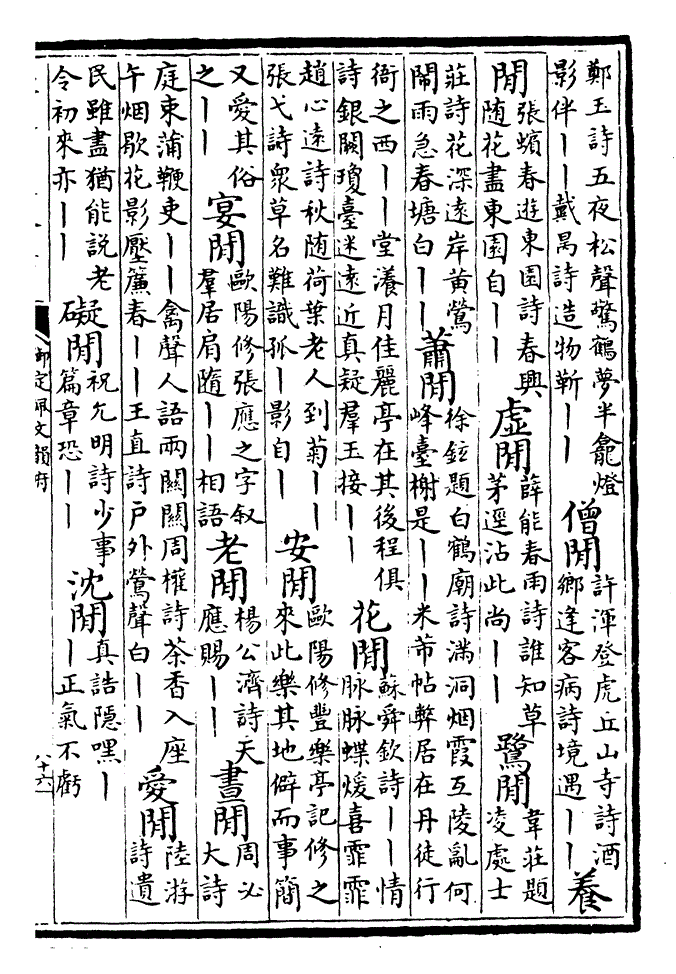 鄭玉詩五夜松聲驚鶴夢半龕燈
影伴丨丨戴昺詩造物靳丨丨
僧閒
許渾登虎丘山寺詩酒
鄉逢客病詩境遇丨丨
養
閒
張蠙春遊東園詩春興
随花盡東園自丨丨
虛閒
薛能春雨詩誰知草
茅逕沾此尚丨丨
鷺閒
韋莊題
凌處士
莊詩花深遠岸黄鶯
鬧雨急春塘白丨丨
蕭閒
徐鉉題白鶴廟詩滿洞烟霞互陵亂何
峰臺榭是丨丨米芾帖弊居在丹徒行
衙之西丨丨堂瀁月佳麗亭在其後程俱
詩銀闕瓊臺迷遠近真疑羣玉接丨丨
花閒
蘇舜欽詩丨丨情
脉脉蝶煖喜霏霏
趙心遠詩秋随荷葉老人到菊丨丨
張弋詩衆草名難識孤丨影自丨
安閒
歐陽修豐樂亭記修之
來此樂其地僻而事簡
又愛其俗
之丨丨
宴閒
歐陽修張應之字叙
羣居肩隨丨丨相語
老閒
楊公濟詩天
應賜丨丨
晝閒
周必
大詩
庭東蒲鞭吏丨丨禽聲人語兩關關周權詩茶香入座
午烟歇花影壓簾春丨丨王直詩戶外鶯聲白丨丨
愛閒
陸游
詩遺
民雖盡猶能說老
令初來亦丨丨
礙閒
祝允明詩少事
篇章恐丨丨
沈閒
真誥隱嘿丨
丨正氣不虧
御定佩文韻府
八十六